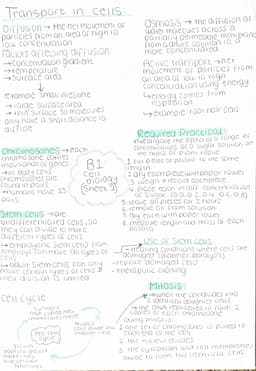 Transport in cells:
Diffusion → the net movement of
particles from an area of high to
low concentration
Factors affecting diffusion
→ concentration gradient
→ temperature
→ surface area
example: small intestine
→ large surface area
→ thin surface so molecules
only have a short distance to
diffuse
Chromosomes → each
chromosome carries
thousands of genes
→ in body cells
chromosomes are
found in pairs
→ humans have 23
pairs
Stem cells → are
undifferentiated cells, so
they can divide to make
different types of cells
→ embryonic stem cells from
can make all types of
cells
→ adult stem cells can only
make certain types of cells &
their division is limited
Cell Cycle
The cell
cycle
B1
Cell
Biology
(Sheet 2)
Osmosis → the diffusion of
water molecules across a
partially permeable membrane
from a dilute solution to a
more concentrated
Active transport → net
movement of particles from
an area of low to high
concentration using energy
→ energy comes from
respiration
→ example: root hair cell
Required Practical
investigate the effect of a range of
concentrations of sugar solution on
the mass of plant tissue
1. cut pieces of potato to the same
length
2. dry each piece with paper towel
3. weigh & record each piece
4. place each in diff concentration
of sugar
5. leave all pieces for 2 hours
6. remove all from solution
7. dry each with paper towel
8. measure length and mass of each
potato
Use of Stem cells
→ treating conditions where cells are
damaged (diabetes, paralysis)
→ replace damaged cells
→ therapeutic cloning
Mitosis:
→ when the cell divides into
2 identical daughter cells
→ the DNA replicates to form 2
copies of each chromosome
→ during mitosis:
1. one set of chromosomes is pulled to
each end of the cell
2. the nucleus divides
3. the cytoplasm and cell membranes
divide to form two identical cells.